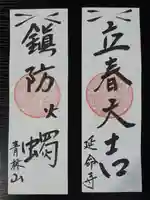 立春大吉
延命寺
鎮防火燭
青林山